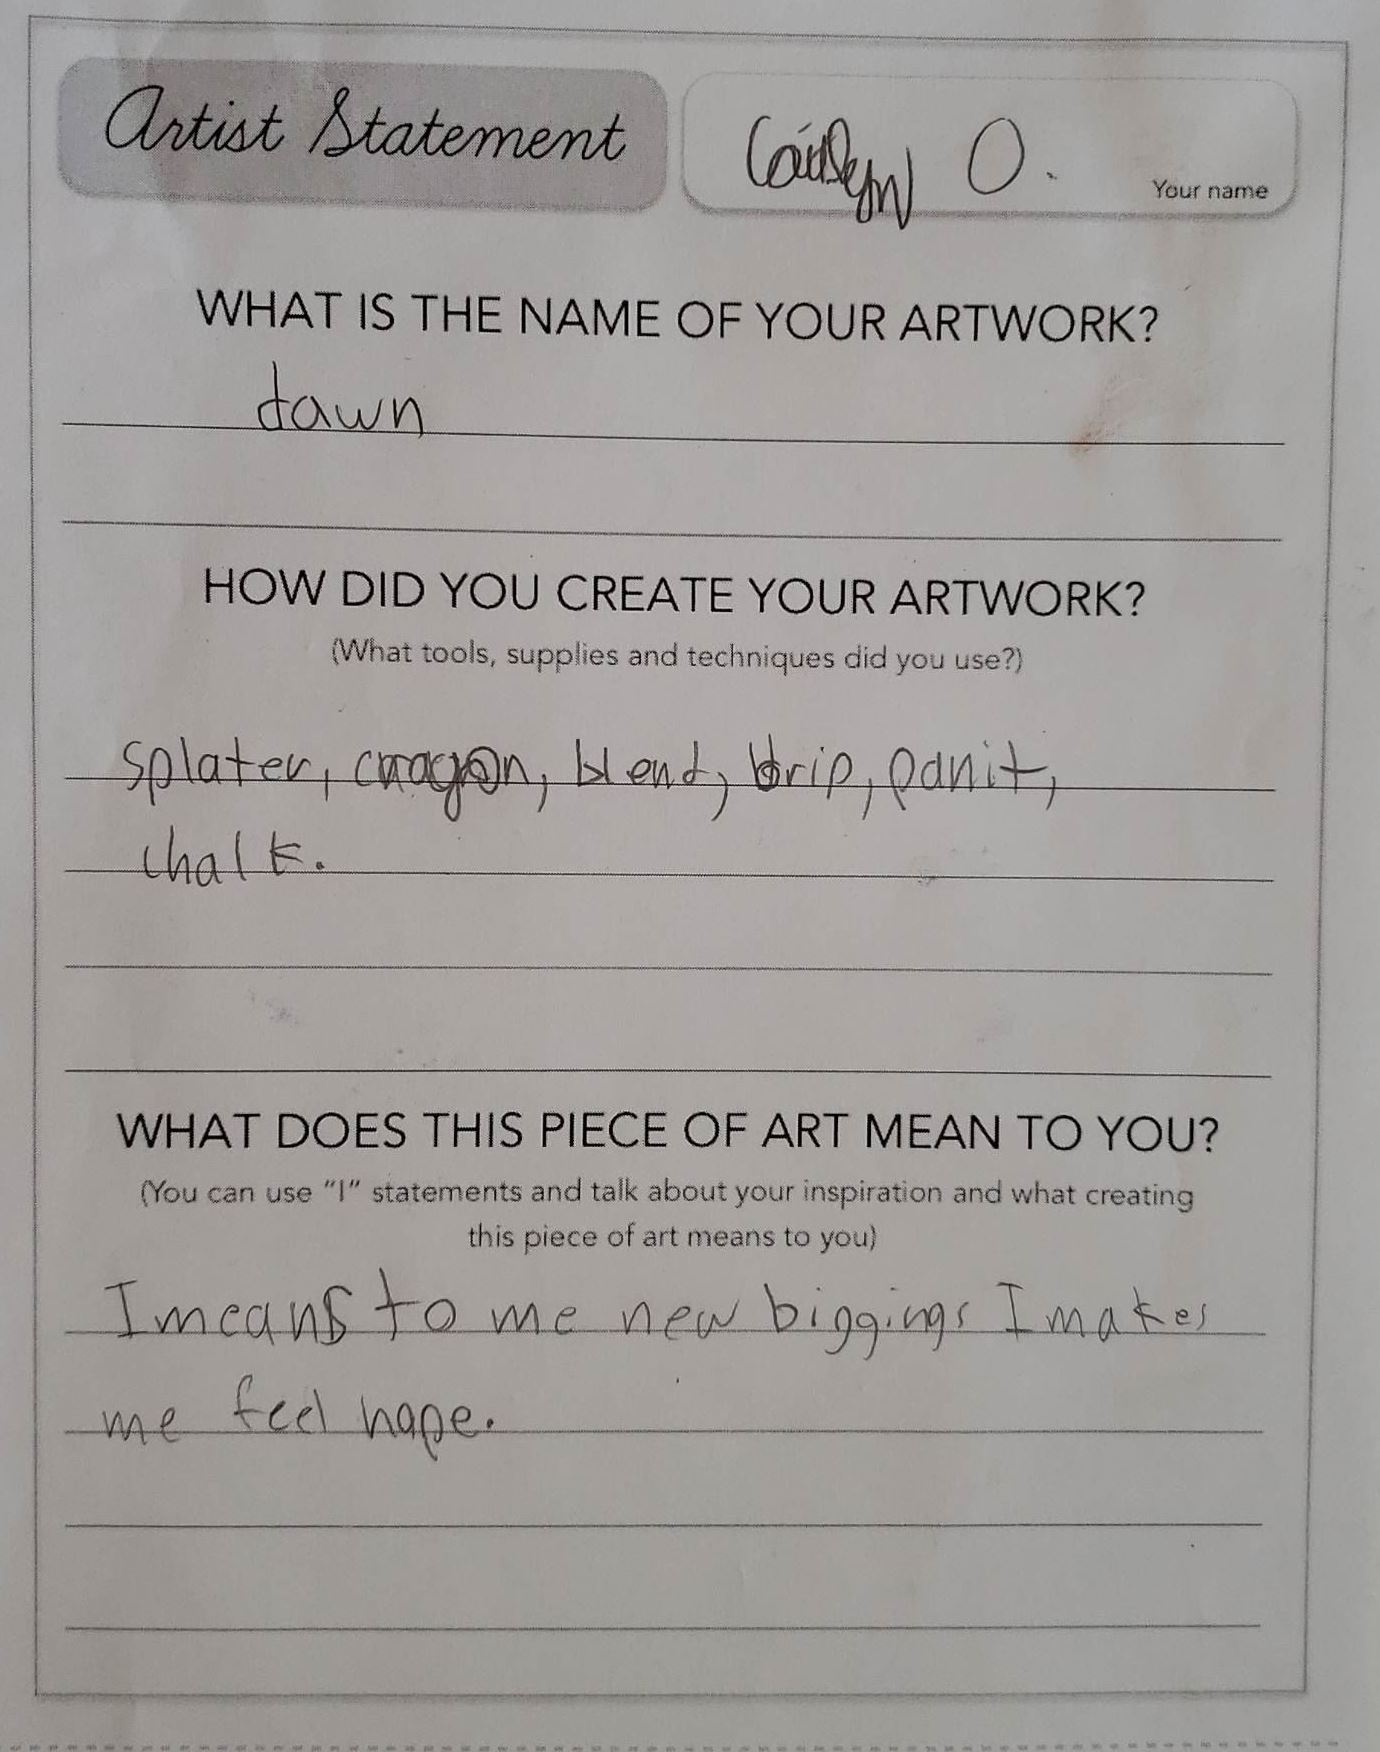 Artist Statement
Caitlyn O.
Your name
WHAT IS THE NAME OF YOUR ARTWORK?
dawn
HOW DID YOU CREATE YOUR ARTWORK?
(What tools, supplies and techniques did you use?)
splater, crayon, blend, drip, panit,
chalk.
WHAT DOES THIS PIECE OF ART MEAN TO YOU?
(You can use "I" statements and talk about your inspiration and what creating
this piece of art means to you)
I means to me new biggings I makes
me feel hope.